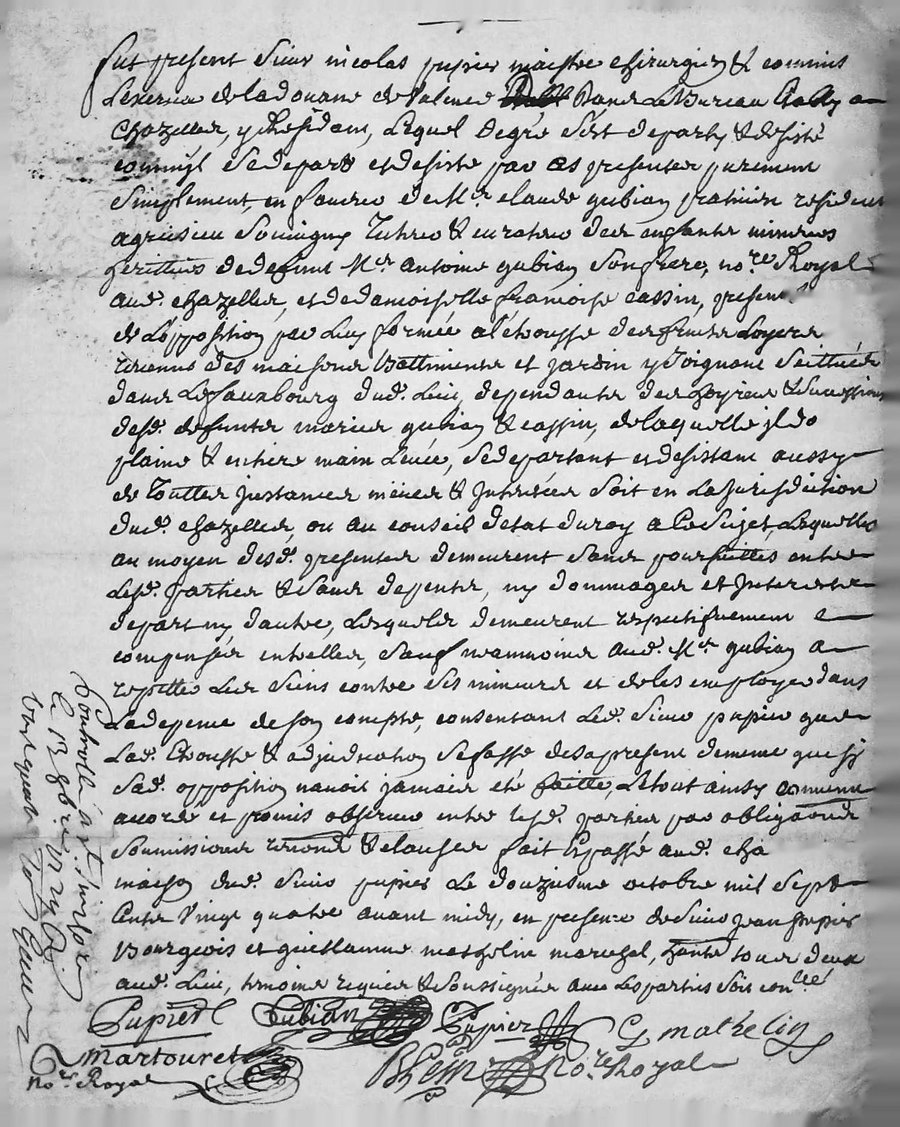 fut present sieur nicolas pupier maistre chirurgien & commis
a la douane de valence dans le bureau estably a
chazelles, y residant, lequel de gré s'est departy & desisté
comme il se depart et desiste par ces presentes purement
simplement, en faveur de Mr. claude gubian praticien resident
tuteur & curateur des enfants mineurs
heritiers de defunt Mr. antoine gubian son frere, nore. Royal
aud. chazelles, et de damoiselle francoise cassin, present
de l'opposition par luy formée a l'etrousse des fruits loyers
revenus des maisons battiments et jardin y joignant scittués
dans le fauxbourg dud. lieu, dependants des hoyries & successions
desd. defunts mariés gubian & cassin, de laquelle il do
plaine & entiere main levée, se departant et desistant aussy
de touttes instances & soit en la jurisdiction
dud. chazelles, ou au conseil detat du roy a ce sujet, lesquelles
au moyen desd. presentes demeurent sans poursuittes entre
lesd. parties & sans depents, ny dommages et interets
de part ny d'autre, lesquels demeurent respectivement
compensés entrelles, sauf neanmoins aud. Mr. gubian a
repetter les siens contre ses mineurs et de les employer dans
la depence de son compte, consentant led. sieur pupier que
lad. etrousse & adjudication se fasse des a present de meme que si
sad. opposition navoit jamais eté faitte, le tout ainsy convenu
accordé et promis observer entre lesd. parties par obligaons
soumissions renonõns & clauses fait & passé aud. cha
maison dud. sieur pupier le douzieme octobre mil sept
cents vingt quatre avant midy, en presence de sieur jean pupier
Bourgeois et guillaume mathelin marechal, habts. tous deux
aud. lieu, temoins requis & soussignés avec les parties soit conllé
Pupier Gubian Pupier G mathelin
Martouret
nore. Royal nore. Royal
Controllé a st.
le 13 8bre. 1724